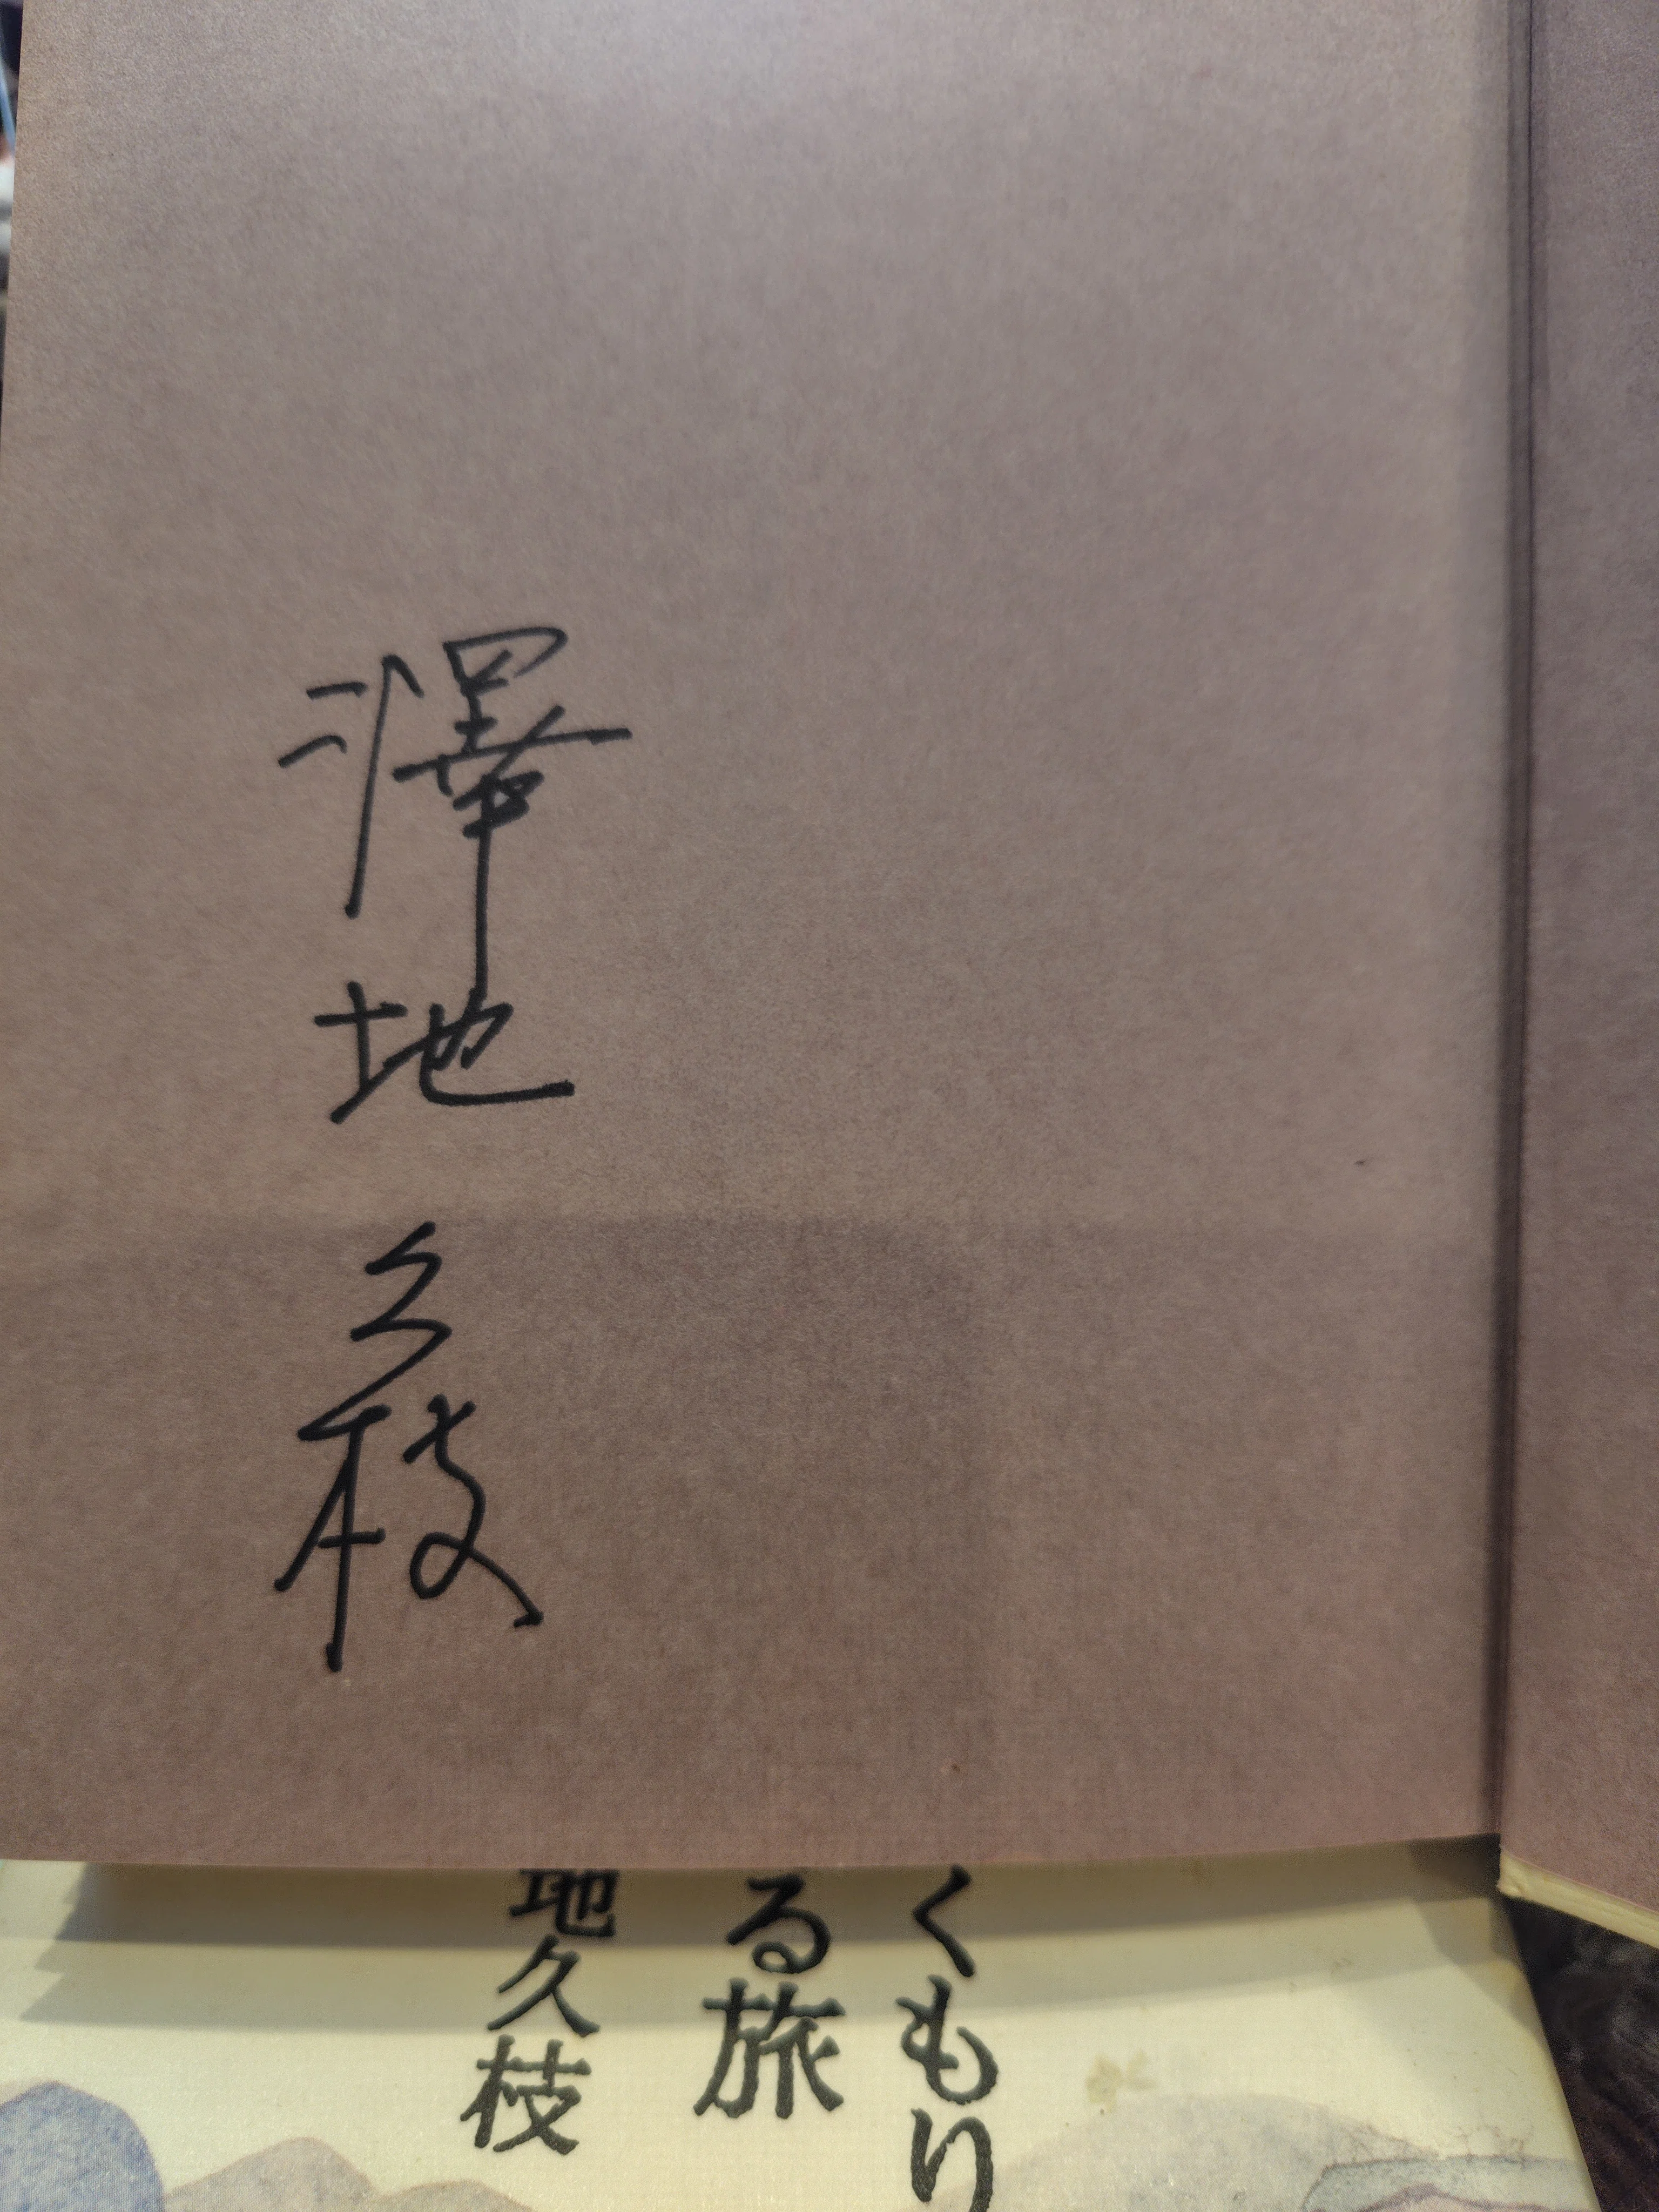 澤地久枝
くもり
る旅
地久枝